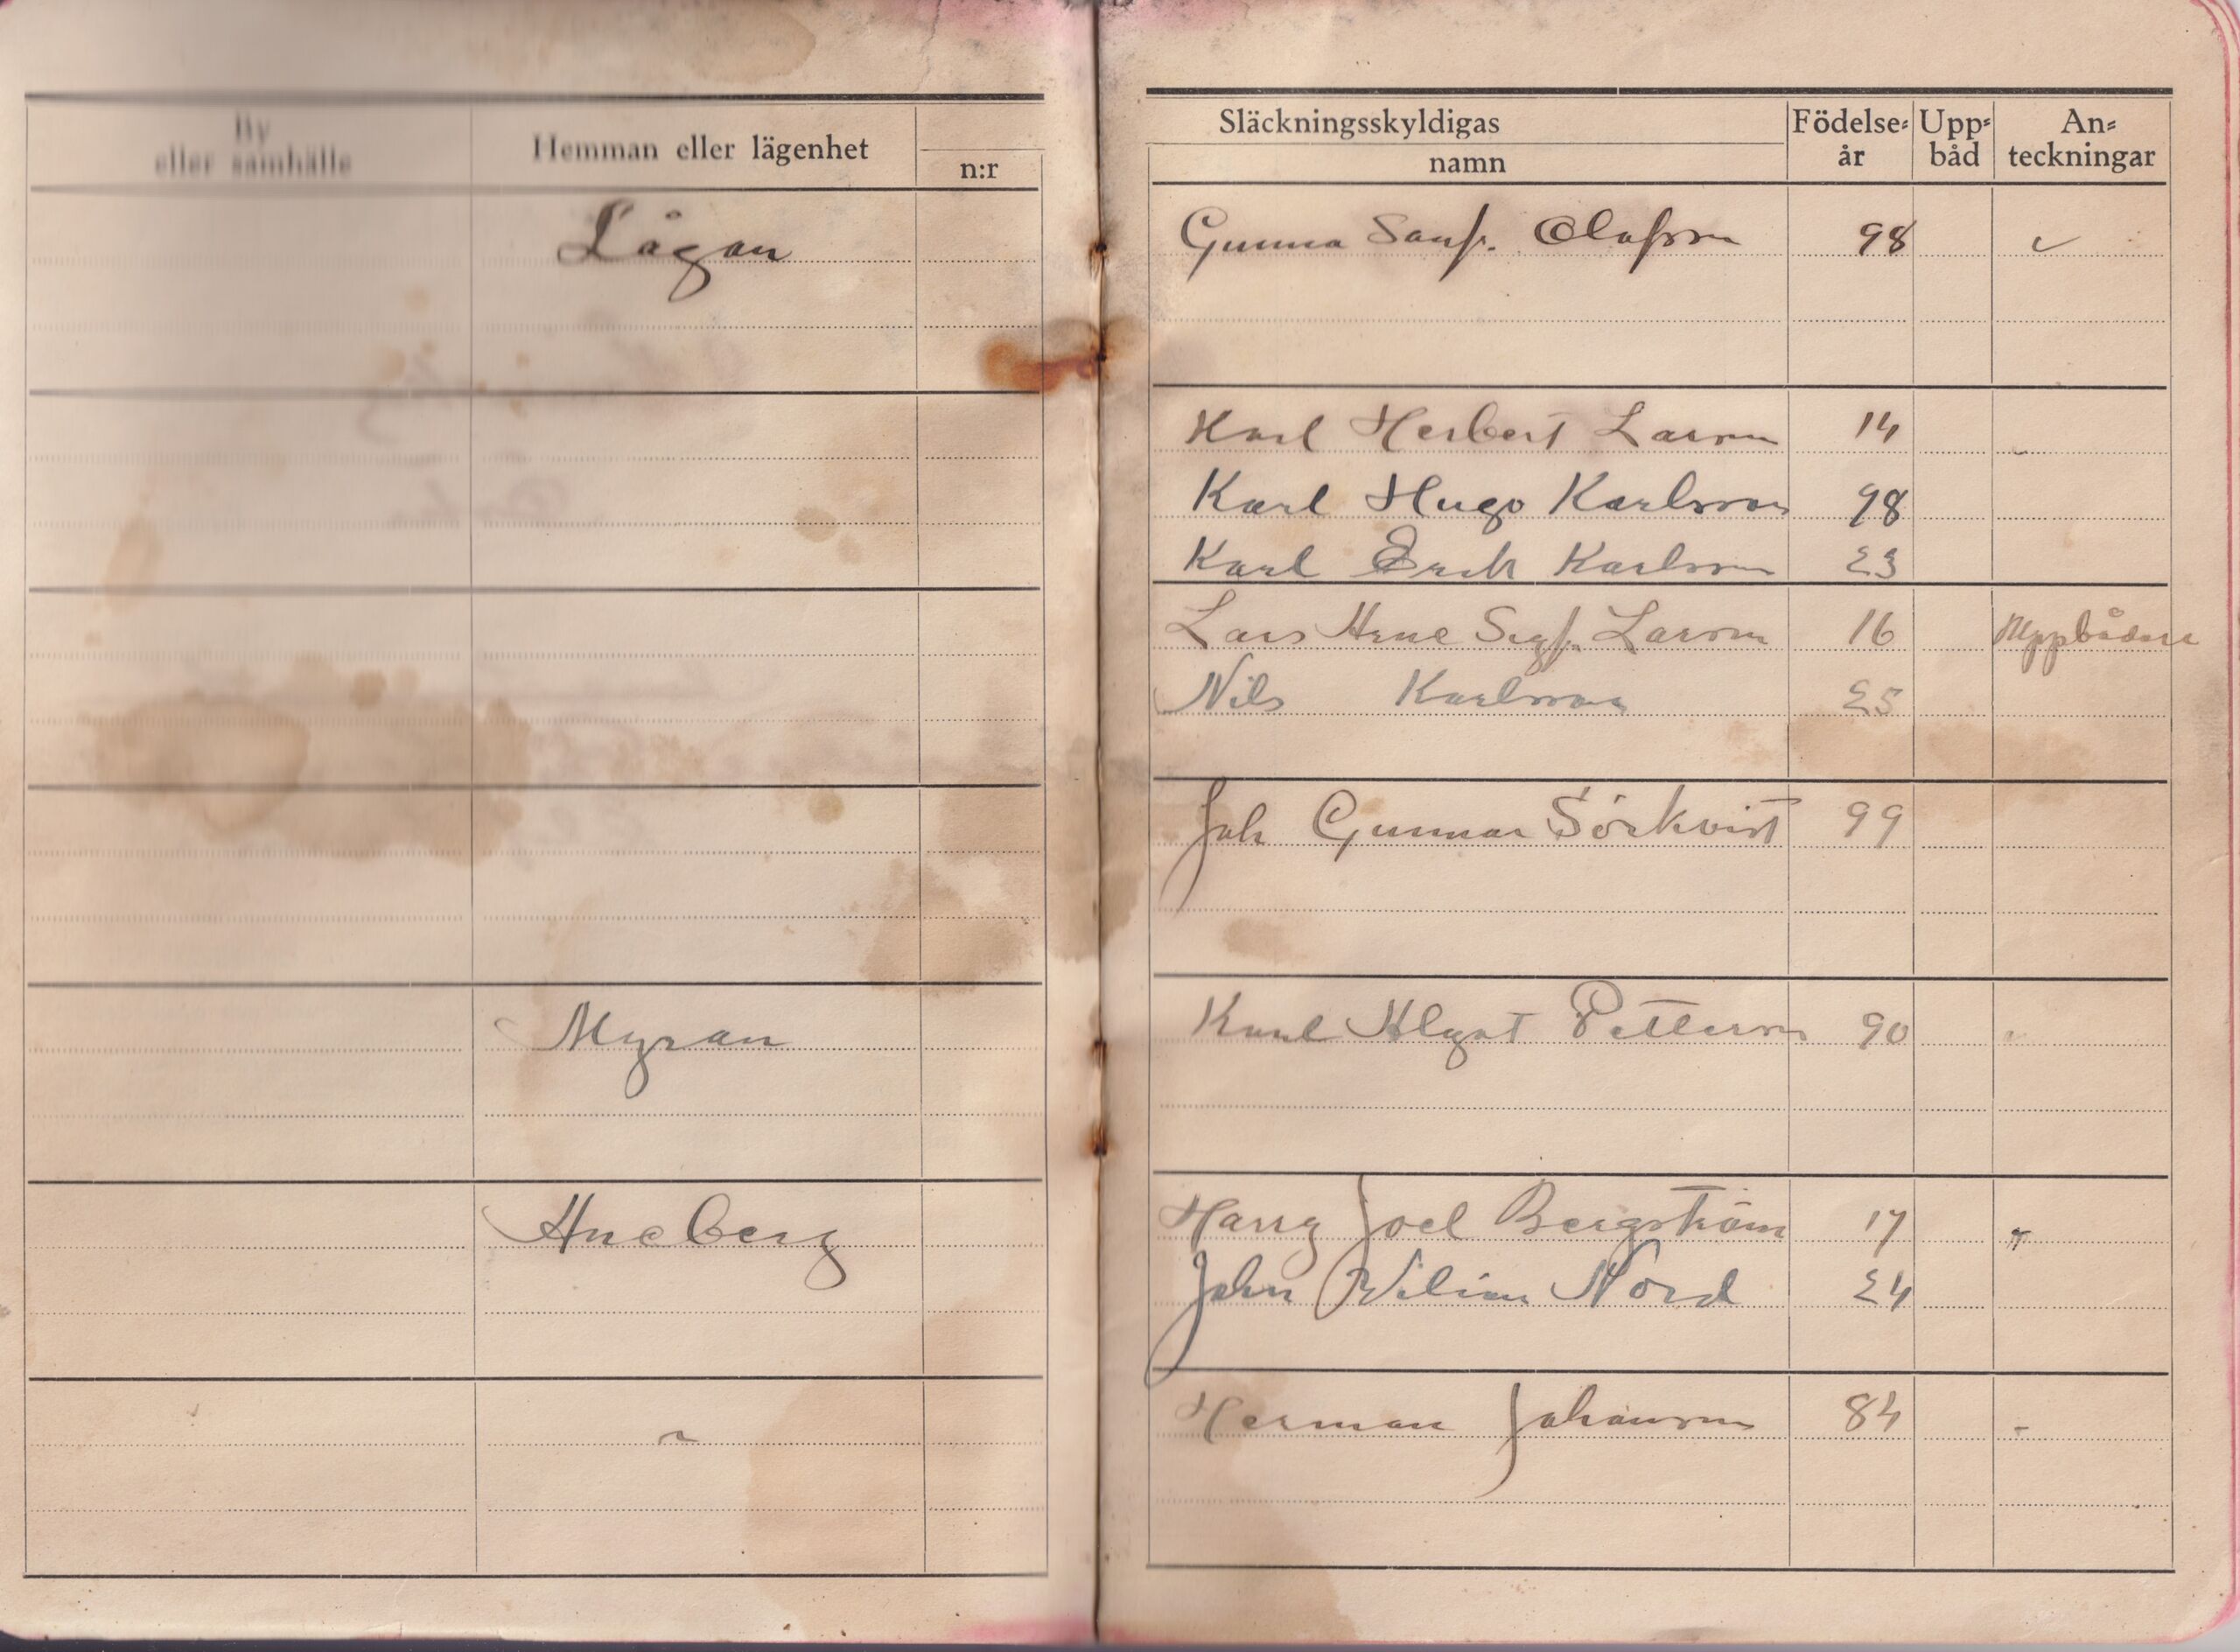 By
eller samhälle
Hemman eller lägenhet
n:r
Släckningsskyldigas
namn
Födelse-
år
Upp-
båd
An-
teckningar
Lågan
Gunna Olofsson 98
Karl Herbert Larson 14
Karl Hugo Karlsson 98
Karl Erik Karlsson 23
Lars Arne Sigf. Larson 16 Uppbådare
Nils Karlsson 25
Joh Gunnar Sörkvist 99
Myran
Karl Algot Petterson 90
Aneberg
Harry Joel Bergström 17 "
John Wilim Nord 24
"
Herman Johanson 84 -